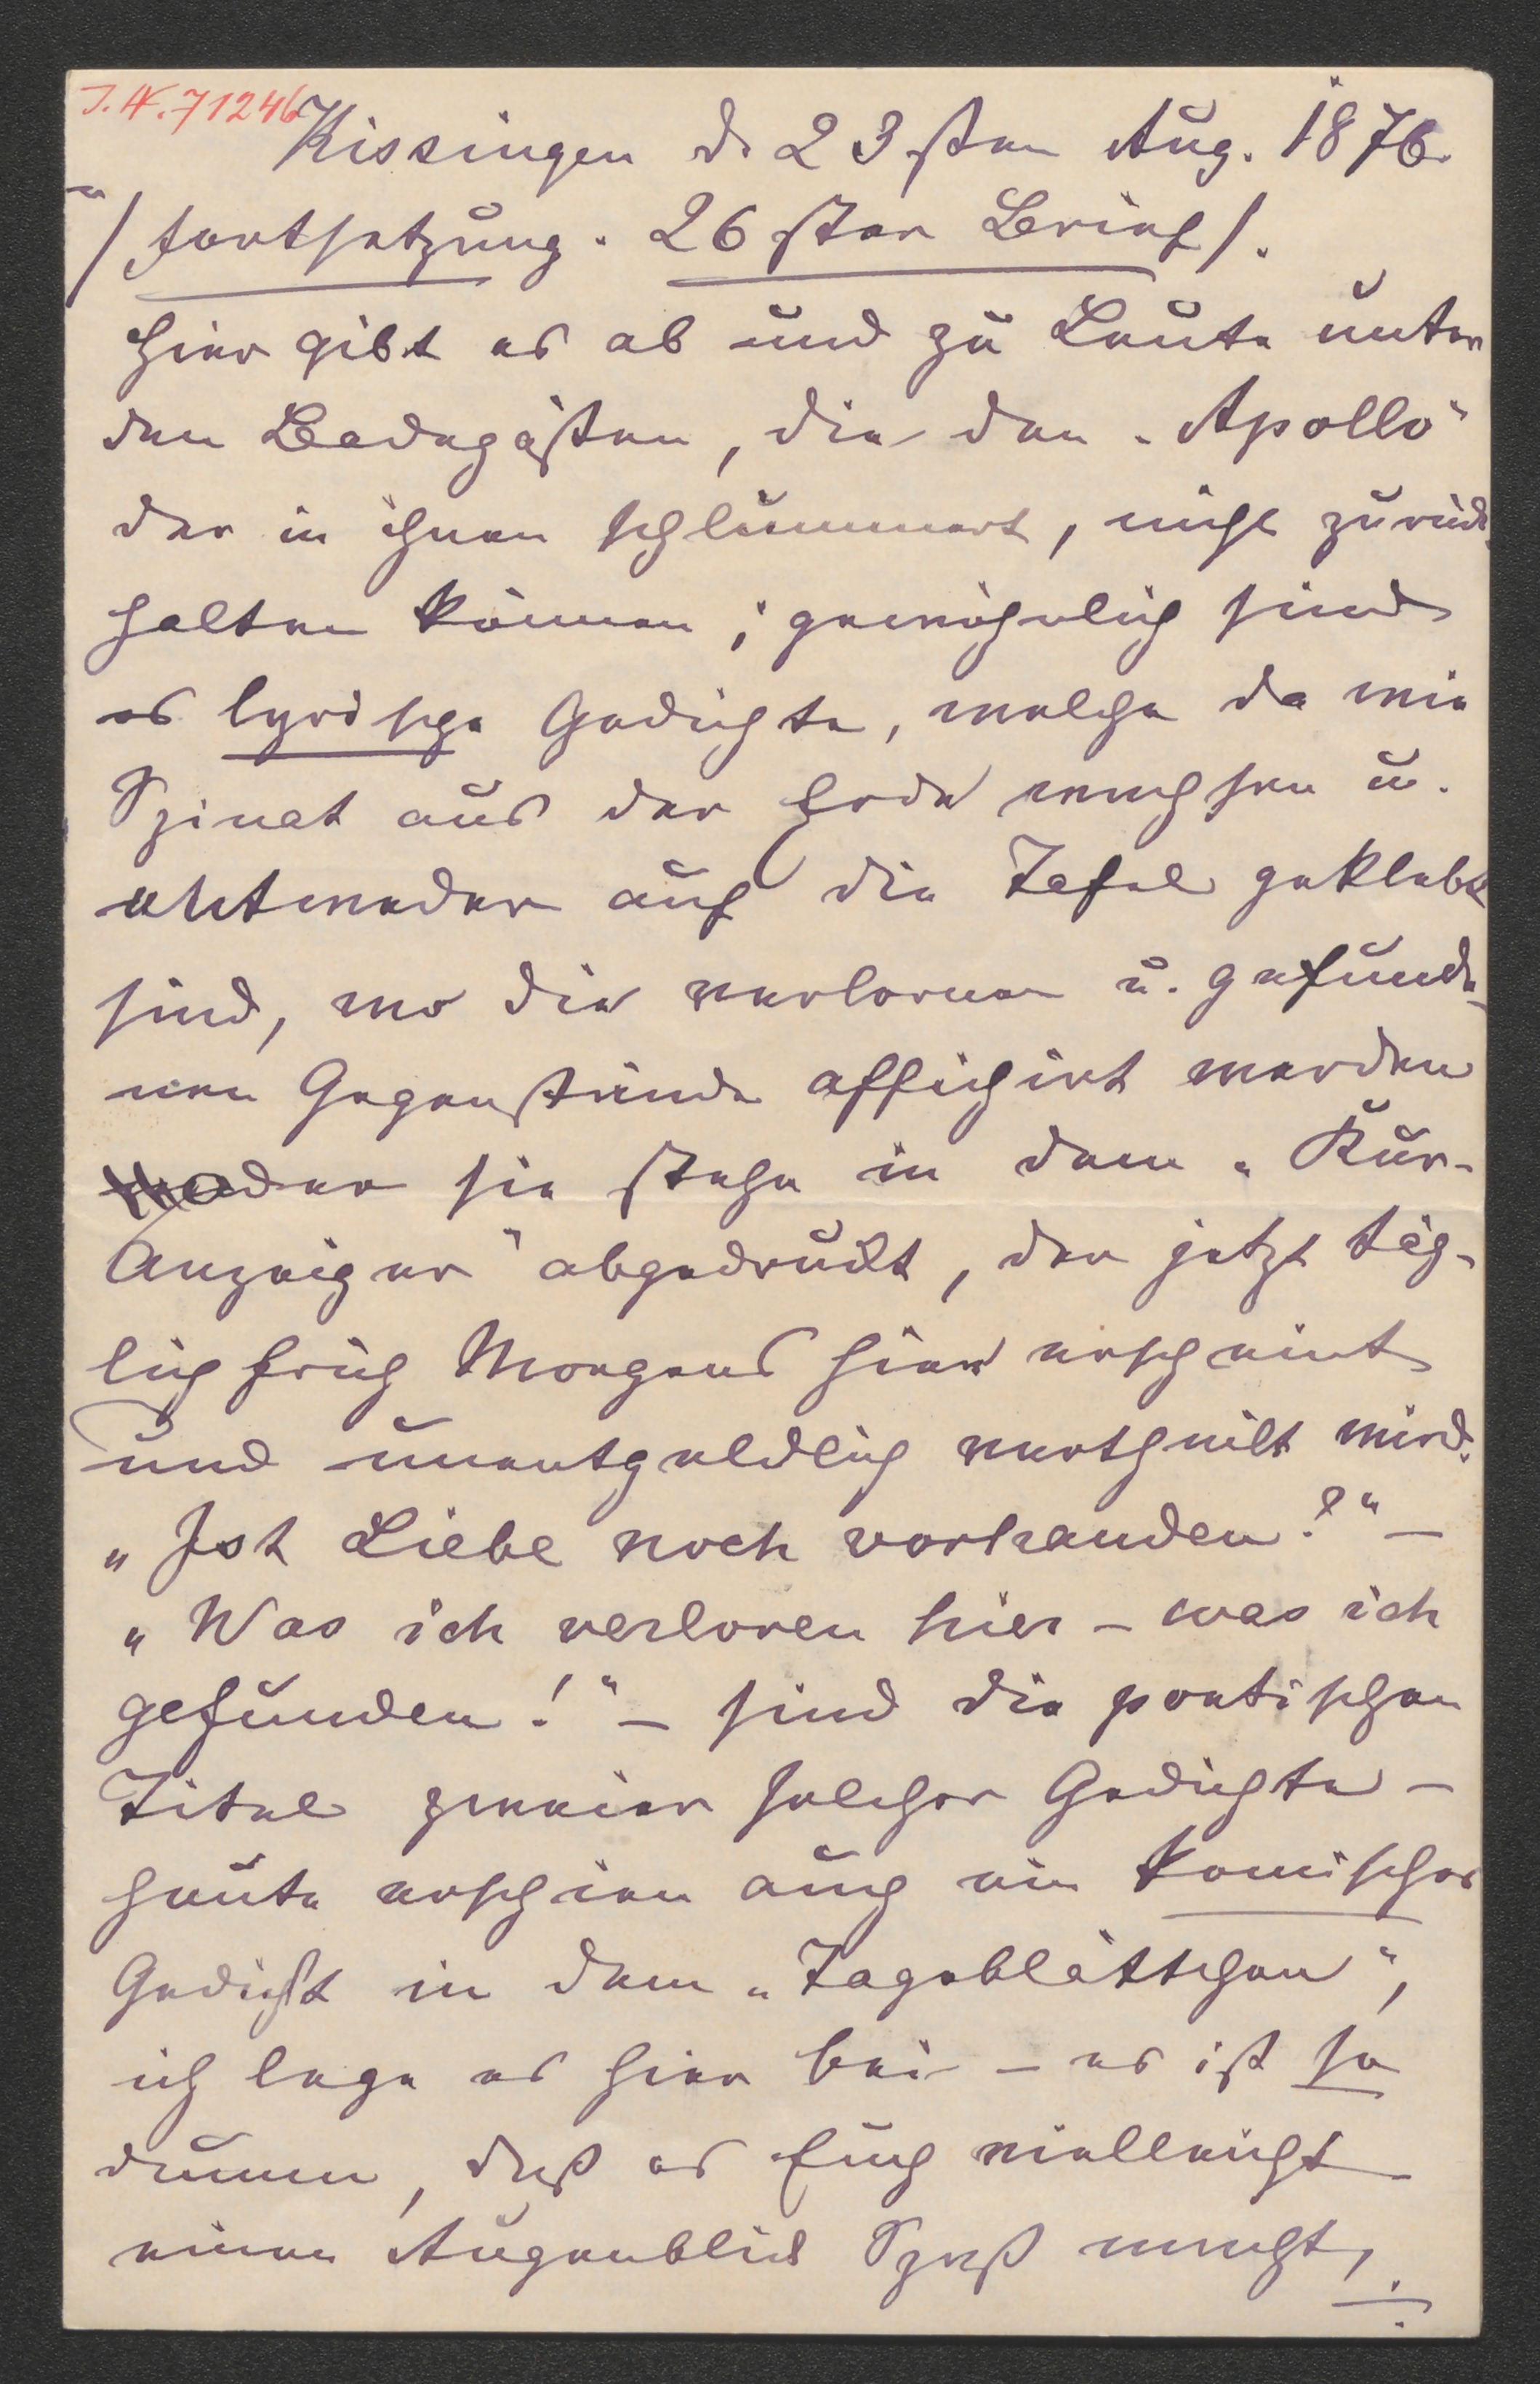 I.N. 71246
Kissingen d. 23sten Aug. 1876.
/ Fortsetzung. 26ster Brief /.
Hier gibt es ab und zu Leute unter
den Badegästen, die den „Apollo“
der in ihnen schlummert, nicht zurück
halten können; gewöhnlich sind
es lyrische Gedichte, welche da wie
Spinat aus der Erde wachsen u.
entweder auf die Tafel geklebt
sind, wo die verlornen u. gefunde-
nen Gegenstände affichirt werden
oder sie stehn in dem „Kur-
Anzeiger“ abgedruckt, der jetzt täg-
lich früh Morgens hier erscheint
und unentgeldlich vertheilt wird.
„Ist Liebe noch vorhanden?“ –
„Was ich verloren hier – was ich
gefunden!“ – sind die poetischen
Titel zweier solcher Gedichte –
heute erschien auch ein komisches
Gedicht in dem „Tagsblättchen“,
ich lege es hier bei – es ist so
dumm, daß es Euch vielleicht
einen Augenblick Spaß macht,